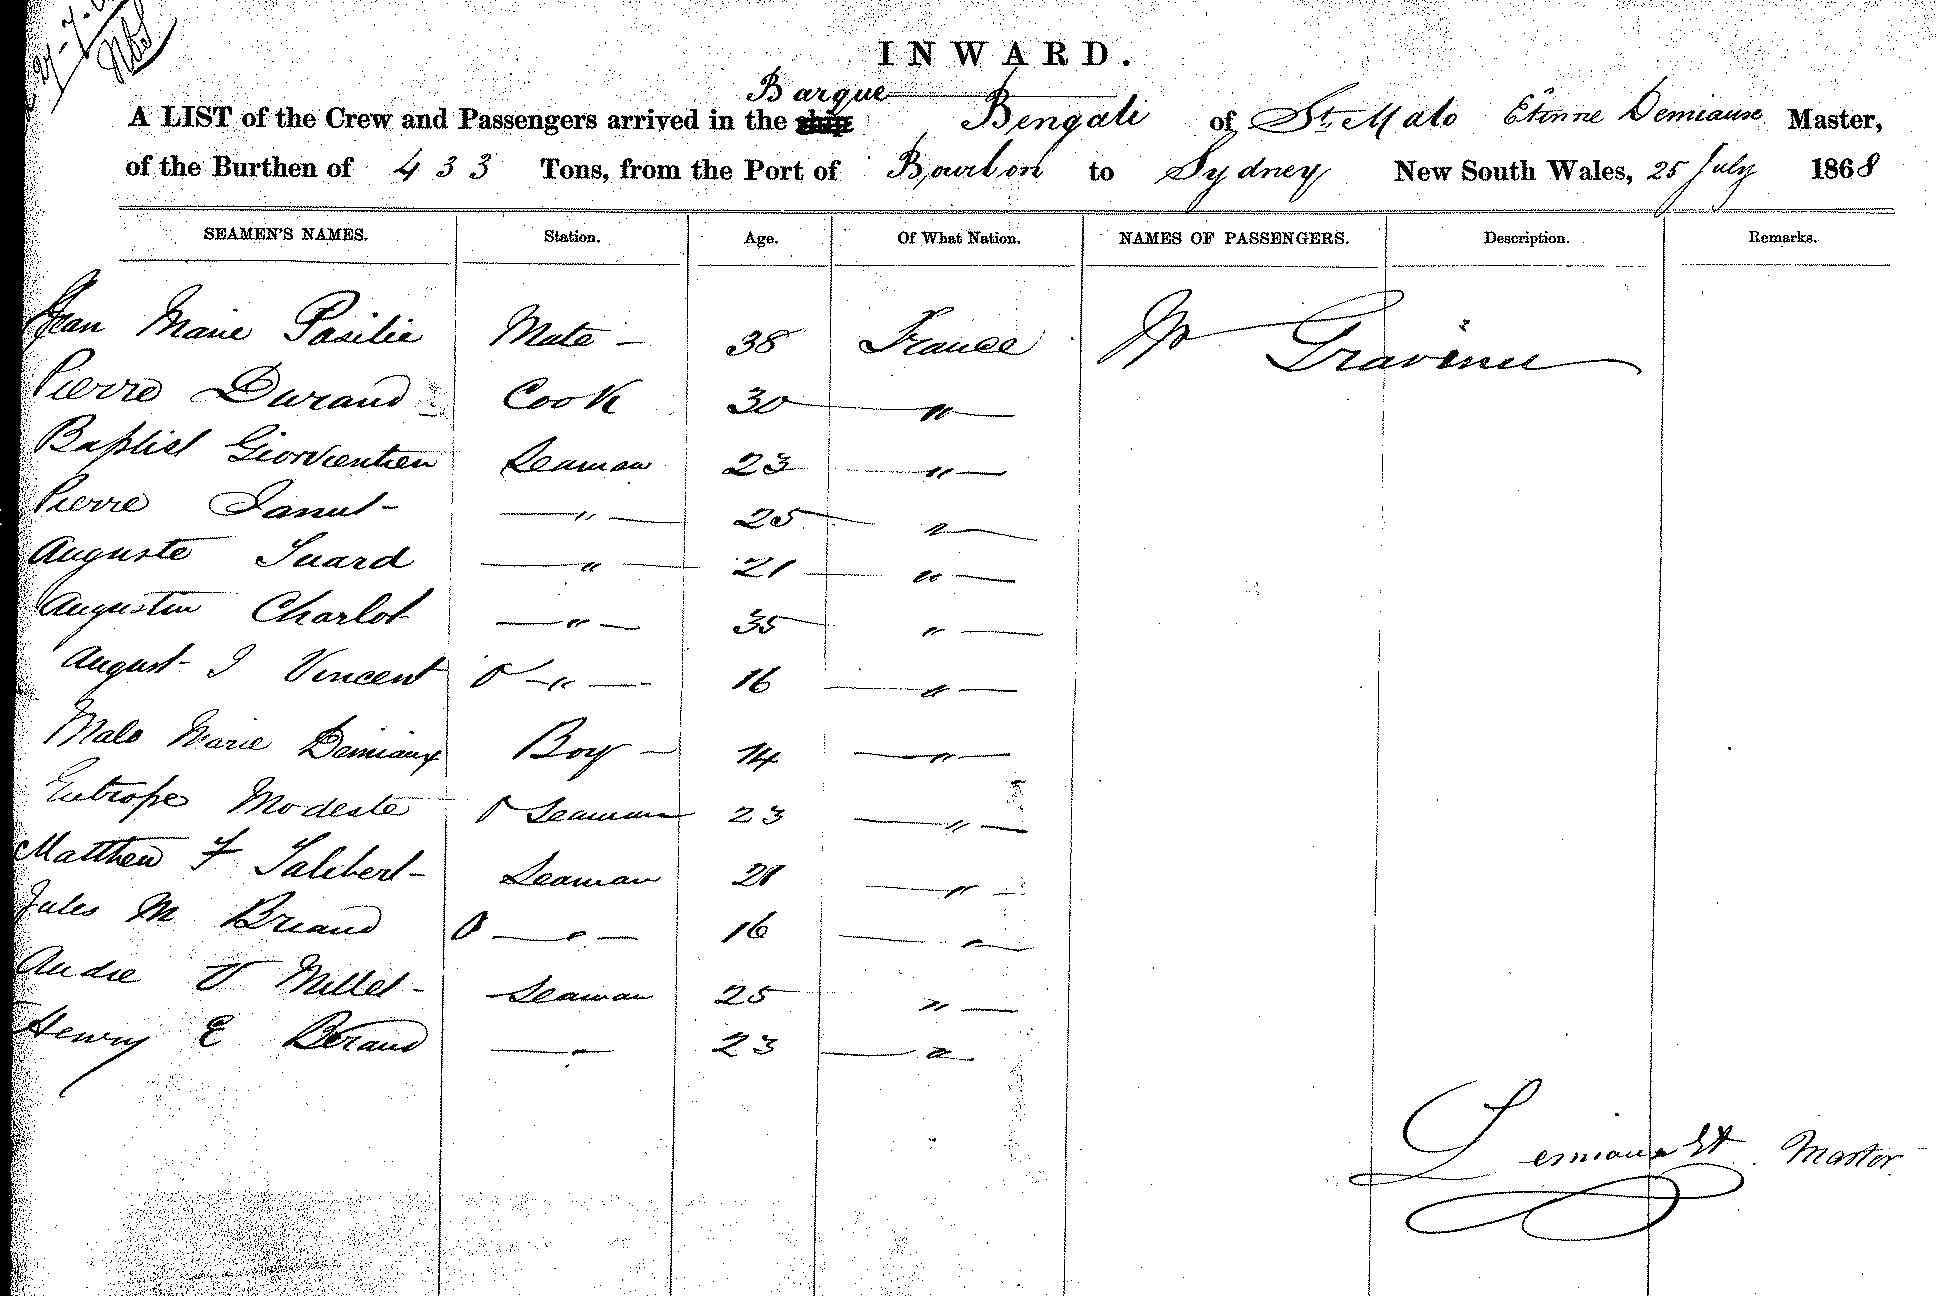 INWARD.
Barque
A LIST of the Crew and Passengers arrived in the ship Bengali of St. Malo Etinne Demiause Master,
of the Burthen of 433 Tons, from the Port of Bourbon to Sydney New South Wales, 25 July 1868
SEAMEN'S NAMES. Station. Age. Of What Nation. NAMES OF PASSENGERS. Description. Remarks.
Jean Marie Pasilie Mate - 38 France Mr
Pierre Durand Cook 30 "
Baptist Seaman 23 "
Pierre " 25 "
Auguste Suard " 21 "
Augustin Charlot " 35 "
August J Vincent O " 16 "
Malo Marie Demiaux Boy - 14 "
Eutrope Modeste O Seaman 23 "
Matthew F Salibert - Seaman 21 "
Jules M Briand O " 16 "
Andre V Millet - Seaman 25 "
Henry E Beraud " 23 "
Master